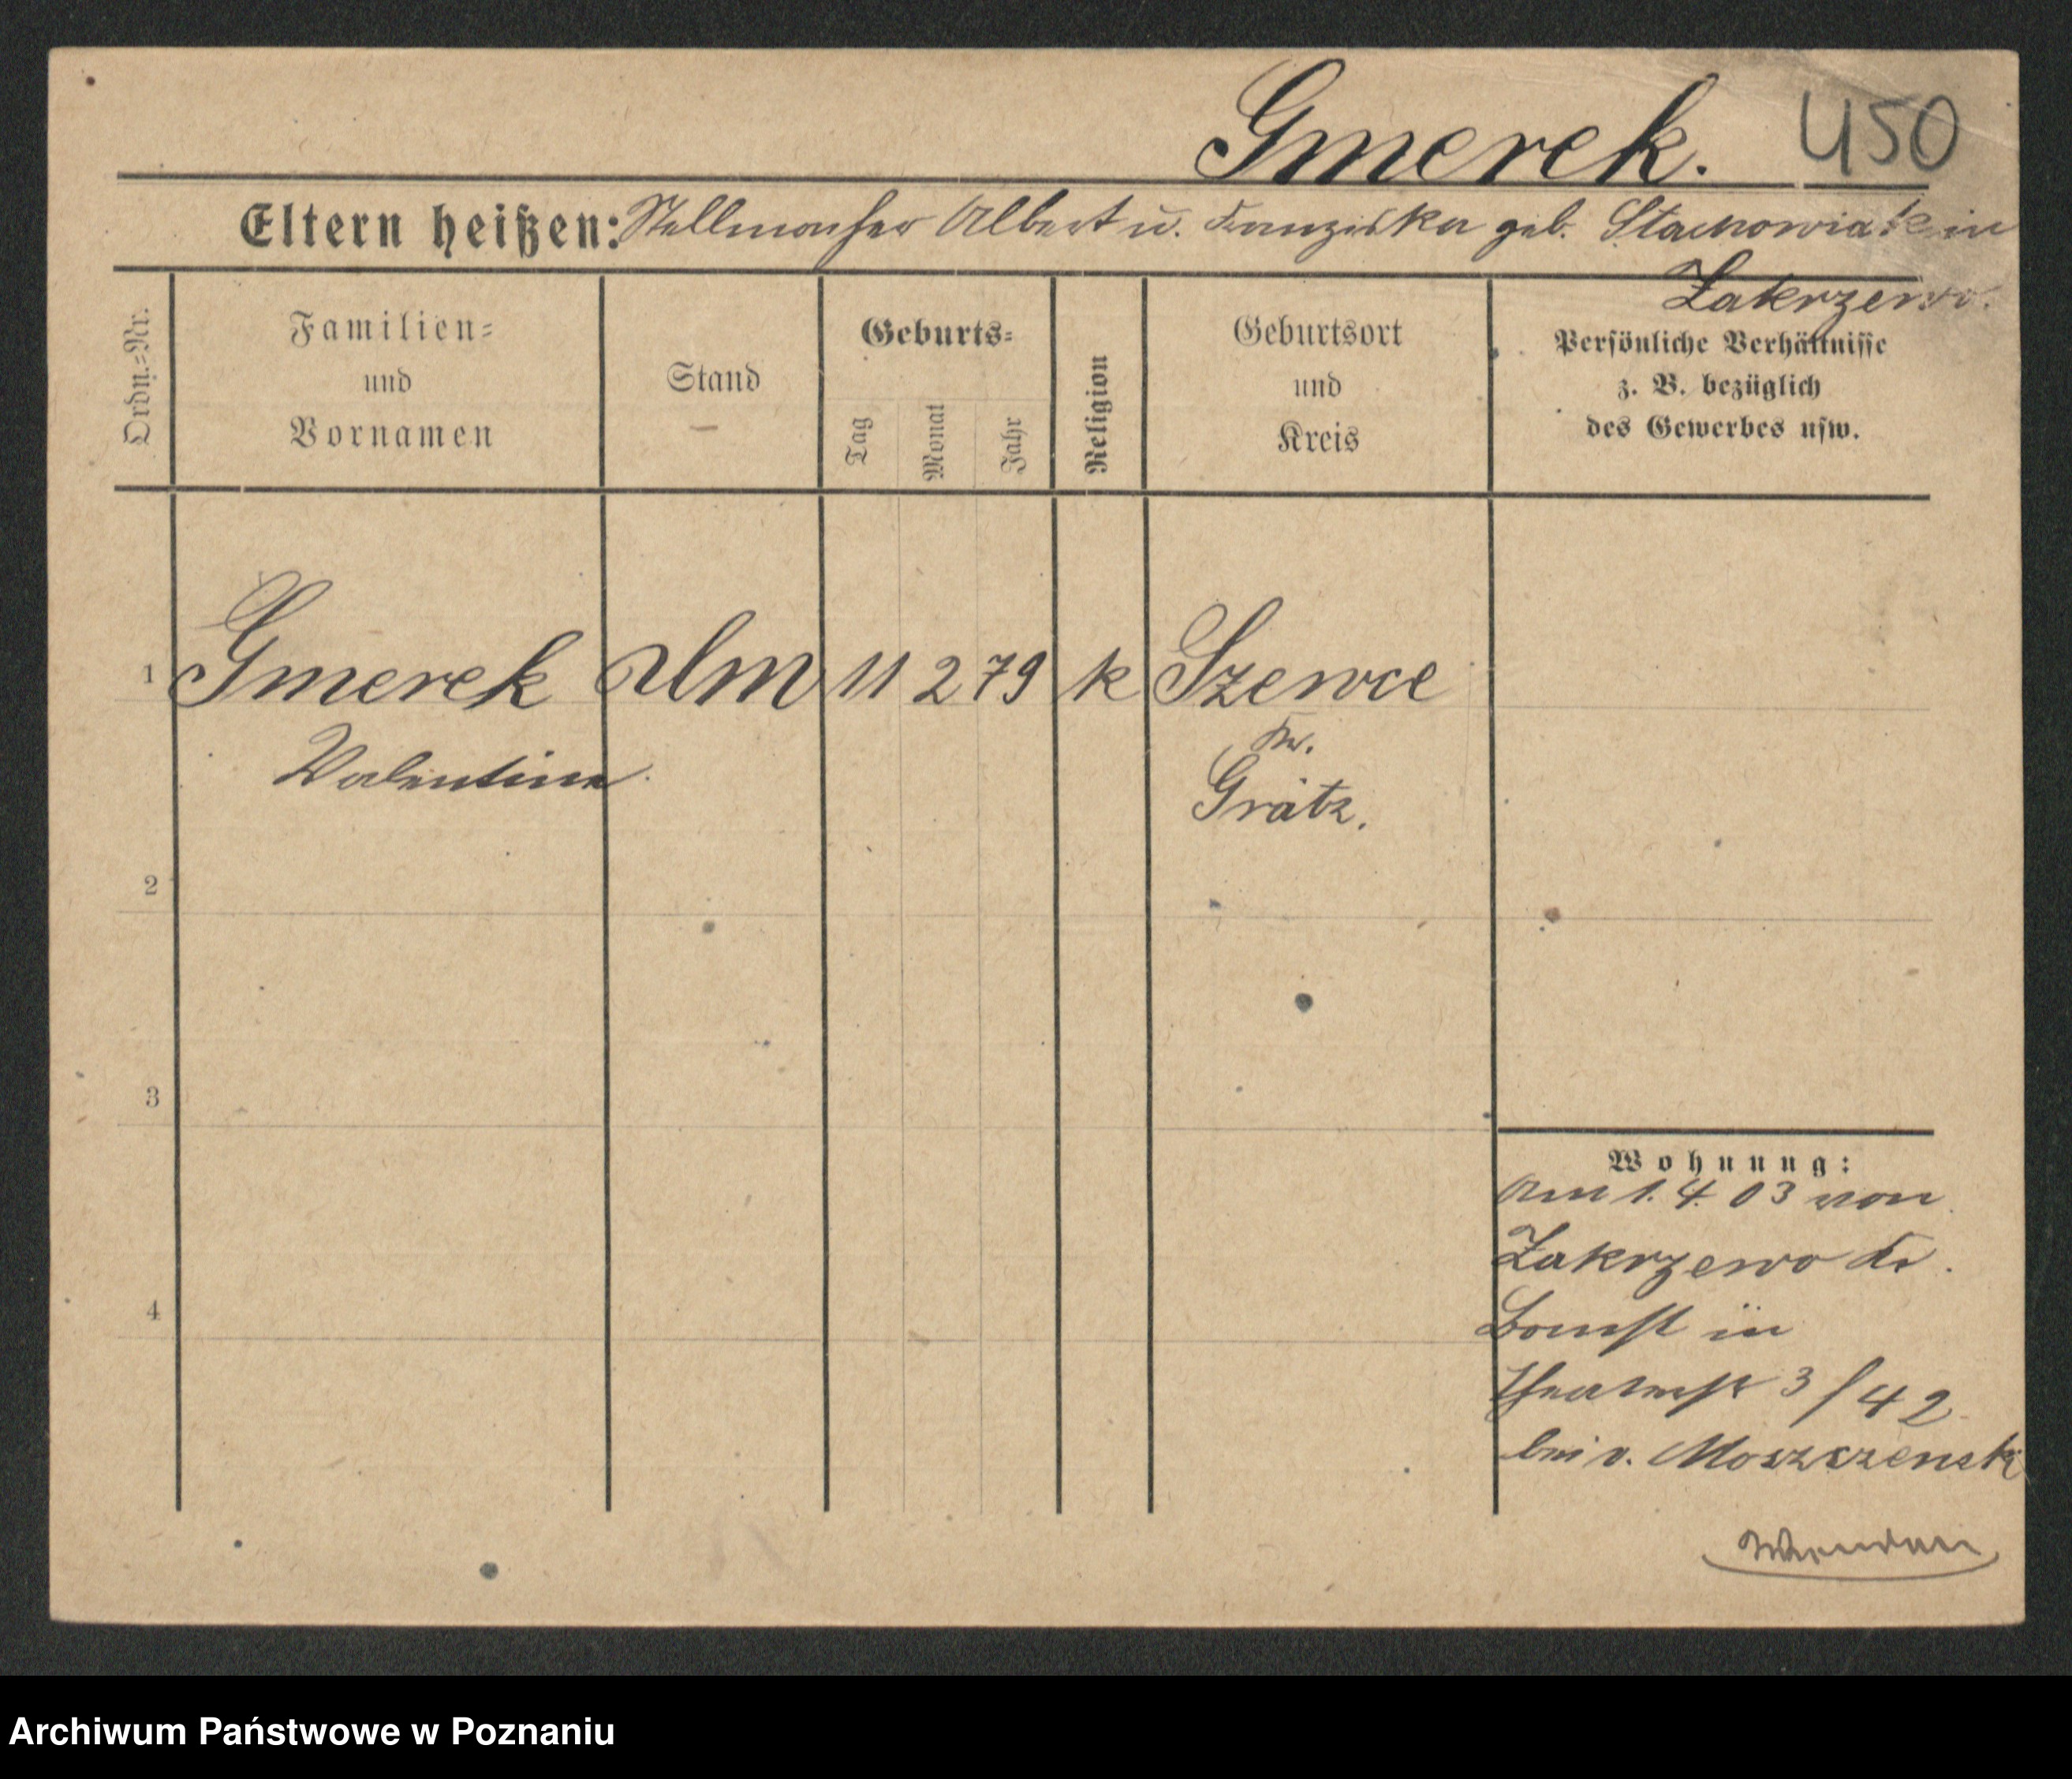 Gmerek. 450
Eltern heißen: Stellmacher Albert u. Franziska geb. Stachowiak in
Zakrzewo.
Ordn.=Nr.
Familien=
und
Vornamen
Stand
Geburts=
Tag
Monat
Jahr
Religion
Geburtsort
und
Kreis
Persönliche Verhältnisse
z. B. bezüglich
des Gewerbes usw.
1 Gmerek 11 2 79 k Szewce
Valentina
Kr.
Grätz.
2
3
4
Wohnung:
Am 1. 4. 03 von
Zakrzewo Kr.
Bomst in
Theaterstr 3/42
bei v. Moszczenski
Archiwum Państwowe w Poznaniu